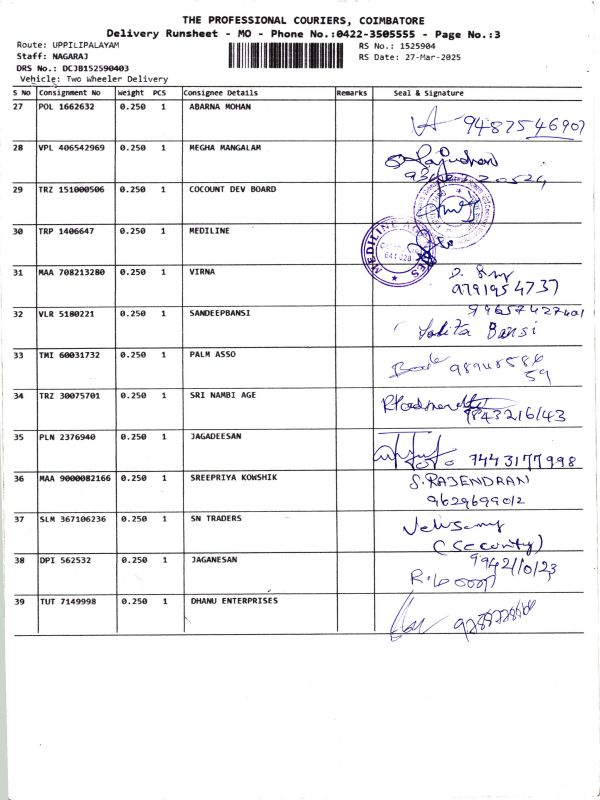 THE PROFESSIONAL COURIERS, COIMBATORE
Delivery Runsheet - MO - Phone No.:0422-3505555 - Page No.:3
Route: UPPILIPALAYAM
Staff: NAGARAJ
DRS No.: DCJB152590403
Vehicle: Two Wheeler Delivery
RS No.: 1525904
RS Date: 27-Mar-2025
S No Consignment No Weight PCS Consignee Details Remarks Seal & Signature
27 POL 1662632 0.250 1 ABARNA MOHAN
9487546907
28 VPL 406542969 0.250 1 MEGHA MANGALAM
29 TRZ 151000506 0.250 1 COCOUNT DEV BOARD
30 TRP 1406647 0.250 1 MEDILINE
MEDILINE
31 MAA 708213280 0.250 1 VIRNA
9791954737
32 VLR 5180221 0.250 1 SANDEEPBANSI
Lalita Bansi
33 TMI 60031732 0.250 1 PALM ASSO
34 TRZ 30075701 0.250 1 SRI NAMBI AGE
9843216143
35 PLN 2376940 0.250 1 JAGADEESAN
7443177998
36 MAA 9000082166 0.250 1 SREEPRIYA KOWSHIK
S. RAJENDRAN
9629699012
37 SLM 367106236 0.250 1 SN TRADERS
(Security)
38 DPI 562532 0.250 1 JAGANESAN
9942110123
39 TUT 7149998 0.250 1 DHANU ENTERPRISES